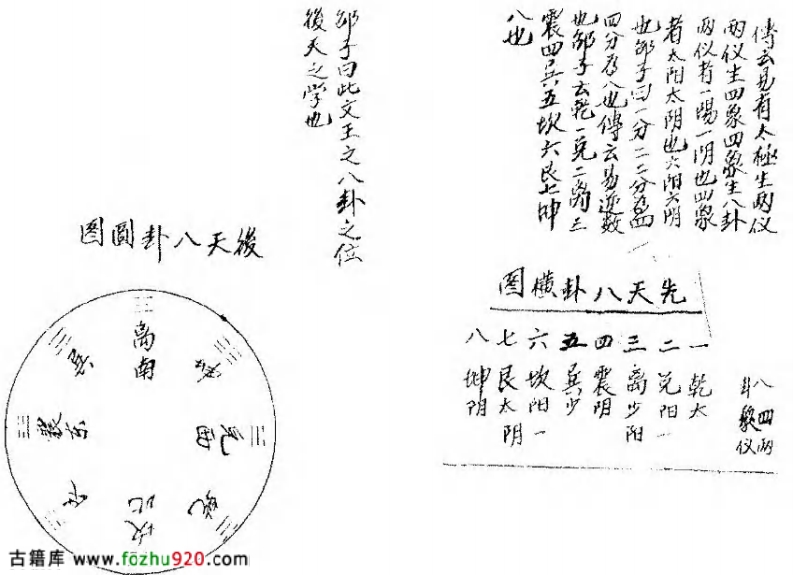 傳云易有太極生兩仪
两仪生四象四象生八卦
两仪者一陽一阴也四象
者太阳太阴也六阳六阴
也邵子曰一分二二分爲
四分为八也傳云易逆数
也邵子云乾一兑二离三
震四巽五坎六艮七坤
八也
先天八卦橫图
八四两
卦象仪
一乾太
二兑阳一
三离少阳
四震阴
五巽少
六坎阳一
七艮太阴
八坤阴
邵子曰此文王之八卦之位
後天之学也
後天八卦圓图
离南
兑西
乾
坎北
艮
震东
巽
古籍库 www.fozhu920.com